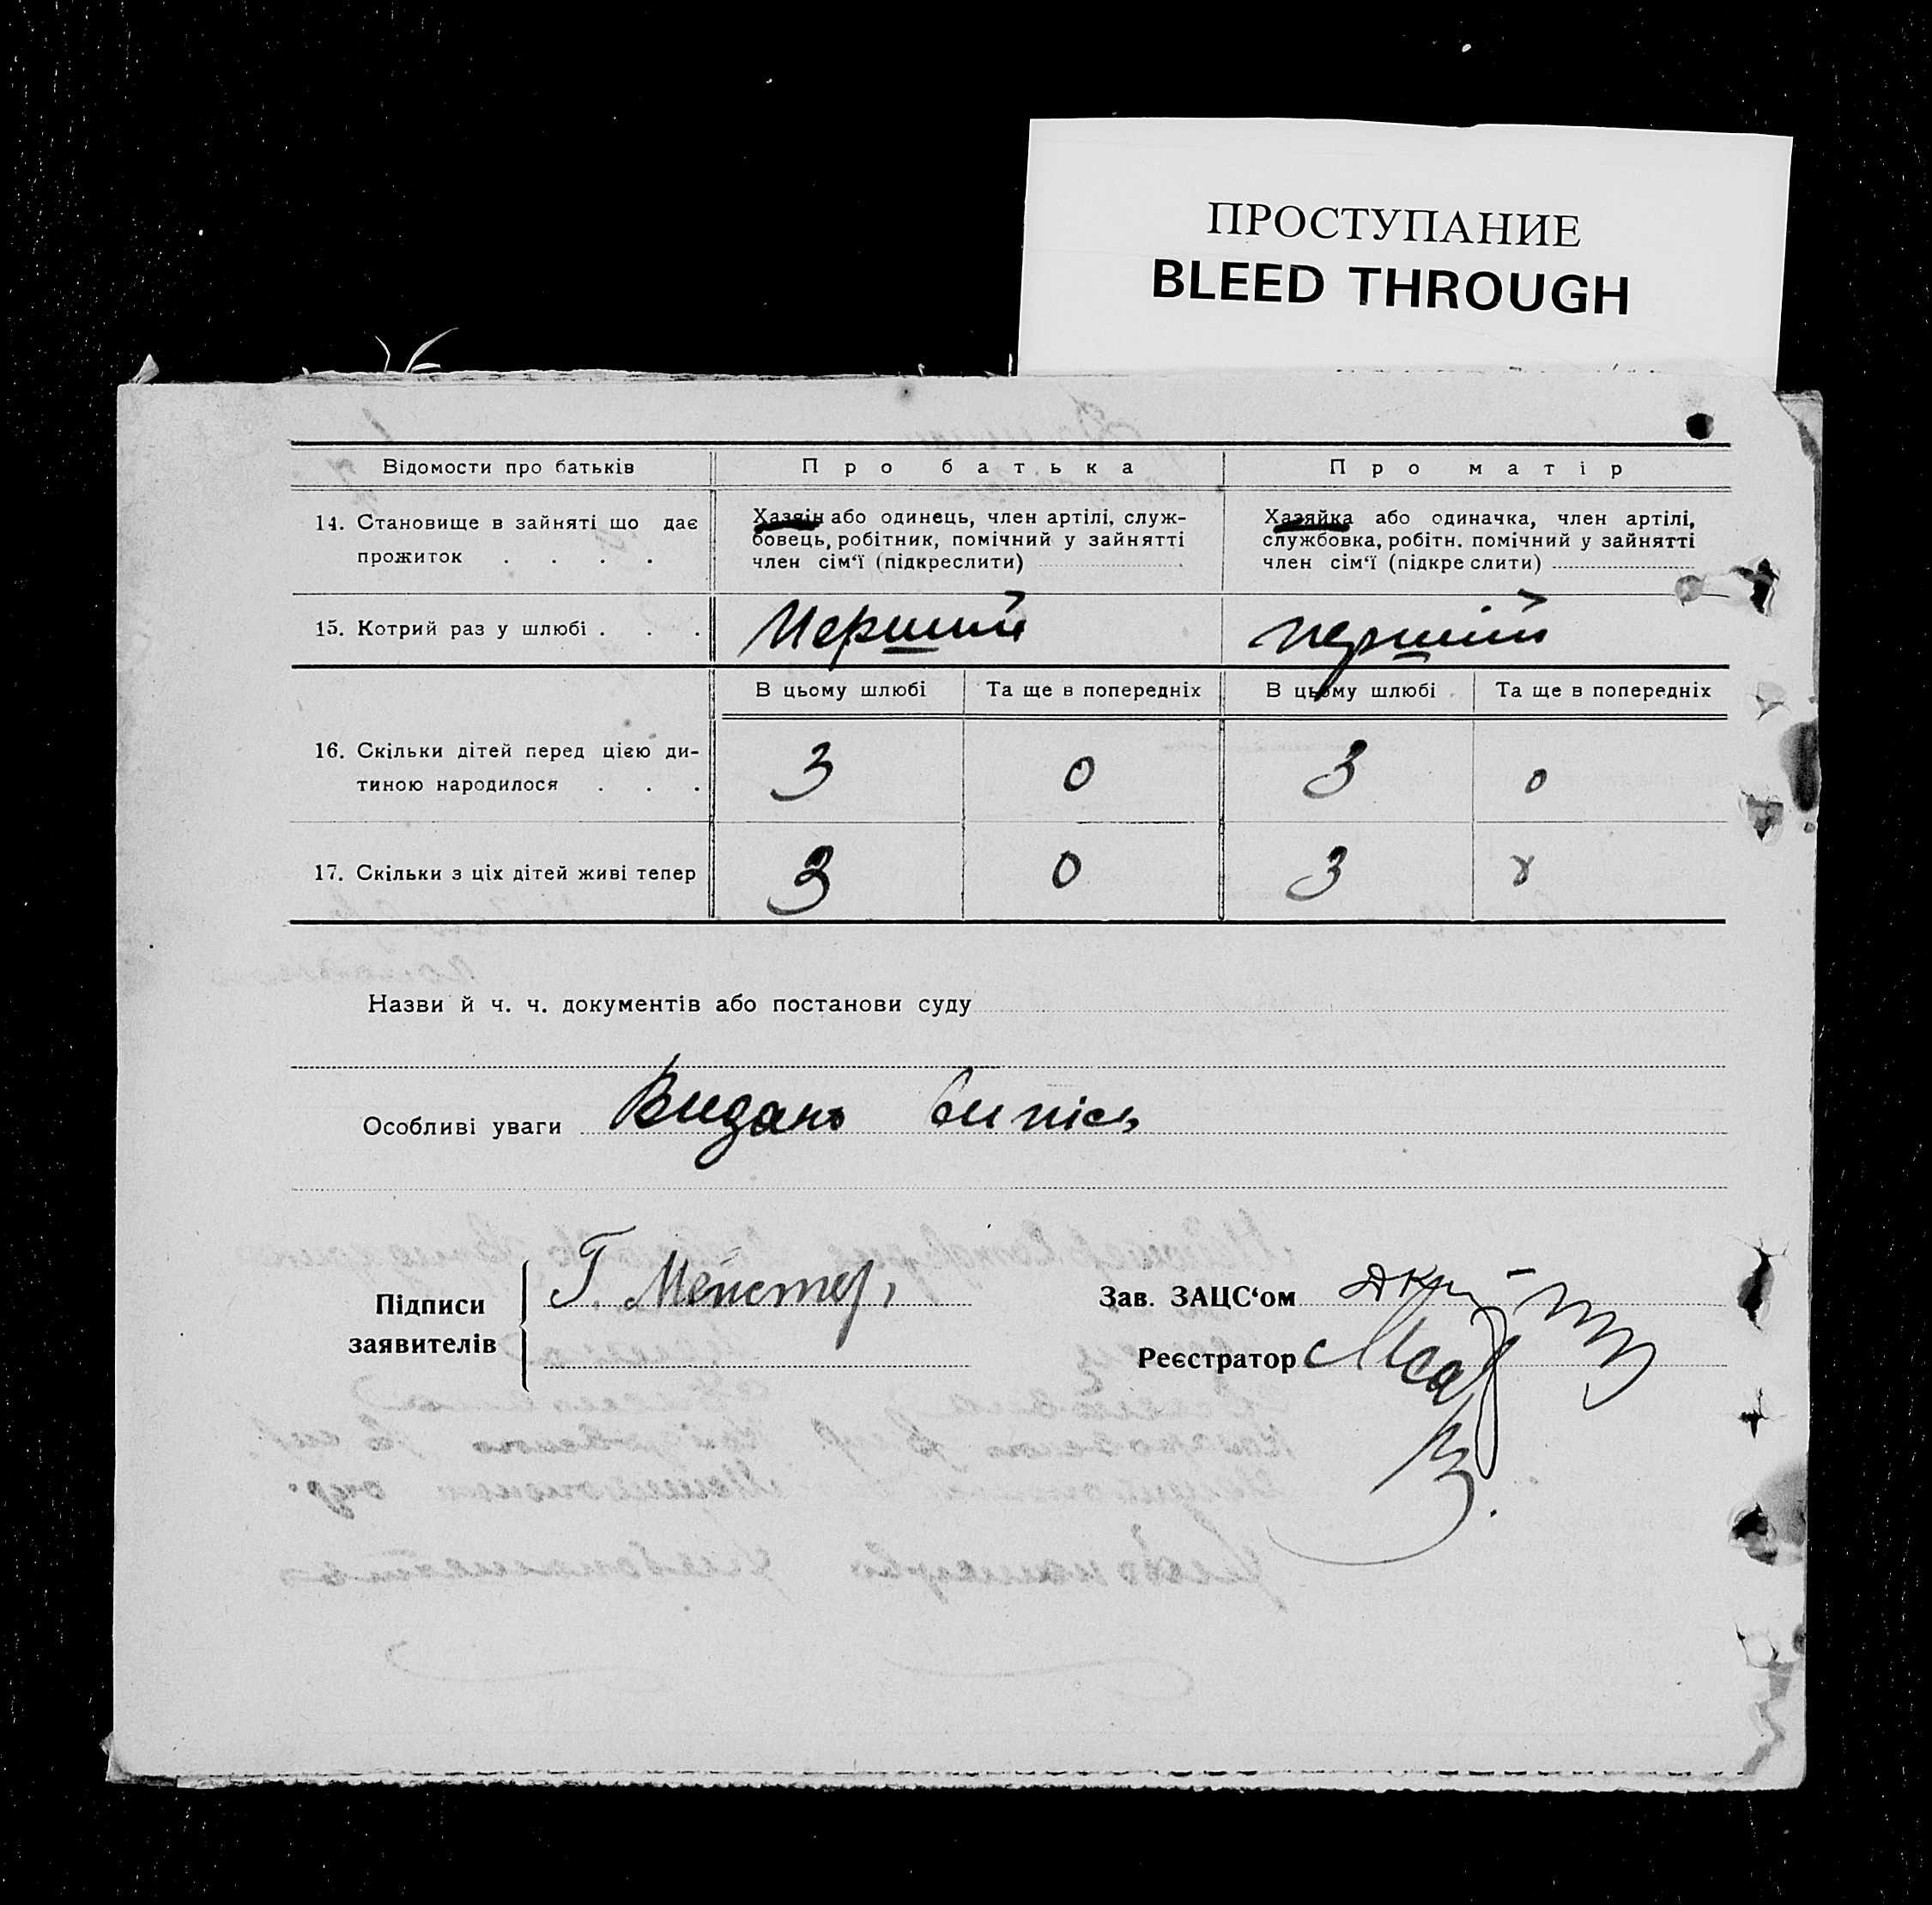 ПРОСТУПАНИЕ
BLEED THROUGH
Відомости про батьків
Про батька
Про матір
14. Становище в зайняті що дає
прожиток . . . .
Хазяін або одинець, член артілі, служ-
бовець, робітник, помічний у зайнятті
член сім‘ї (підкреслити)
Хазяйка або одиначка, член артілі,
службовка, робітн. помічний у зайнятті
член сім‘ї (підкреслити)
15. Котрий раз у шлюбі . . .
Перший
перший
В цьому шлюбі
Та ще в попередніх
В цьому шлюбі
Та ще в попередніх
16. Скільки дітей перед цією ди-
тиною народилося . . .
3
0
3
0
17. Скільки з ціх дітей живі тепер
3
0
3
Назви й ч. ч. документів або постанови суду
Особливі уваги Видано випісь
Підписи
заявителів
Г. Мейстер
Зав. ЗАЦС‘ом
Реєстратор